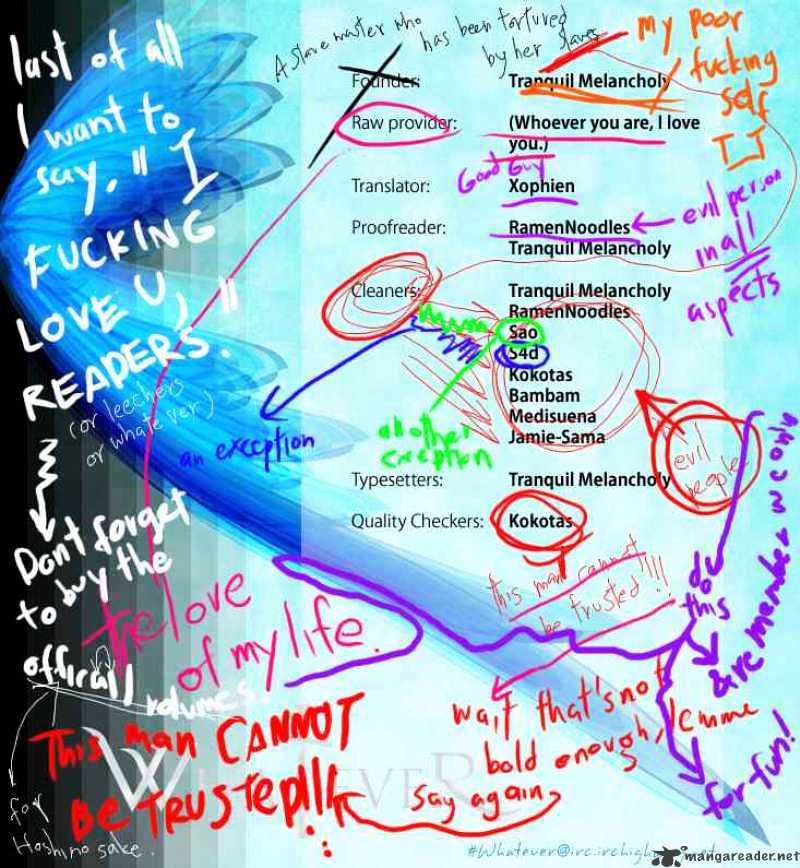 A slave master who has been tortured
by her slaves
my poor
fucking
self
T_T
Founder: Tranquil Melancholy
Raw provider: (Whoever you are, I love
you.)
Good Guy
Translator: Xophien
Proofreader: RamenNoodles
Tranquil Melancholy
evil person
in all
aspects
Cleaners: Tranquil Melancholy
RamenNoodles
Sao
S4d
Kokotas
Bambam
Medisuena
Jamie-Sama
an exception
another
exception
evil
people
Typesetters: Tranquil Melancholy
Quality Checkers: Kokotas
This man cannot
be trusted!!!
wait that's not
bold enough, lemme
say again
This man CANNOT
BE TRUSTED!!!
the love
of my life.
last of all
I want to
say, " I
FUCKING
LOVE U,
READERS."
(or leechers
or whatever)
Dont forget
to buy the
offical
volumes.
for
Hoshino sake.
do
this
for fun!
WhatEveR
#Whatever@irc.irchigh
mangareader.net